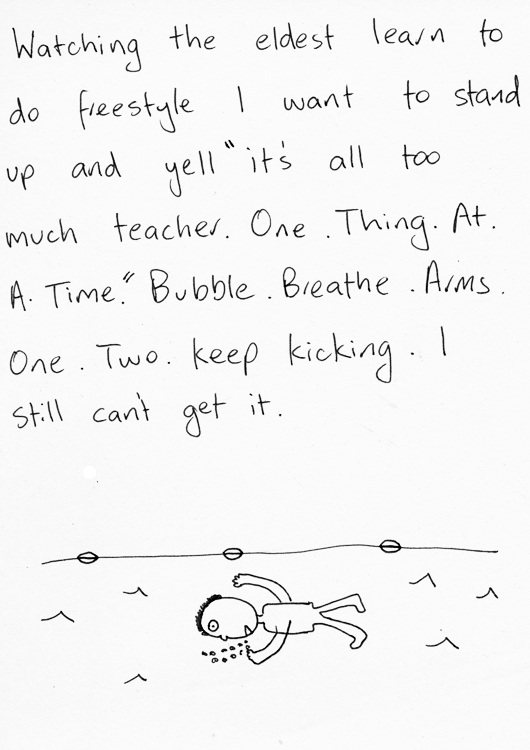 Watching the eldest learn to
do freestyle I want to stand
up and yell "it's all too
much teacher. One . Thing. At.
A. Time." Bubble . Breathe . Arms .
One . Two. keep kicking . I
still can't get it.